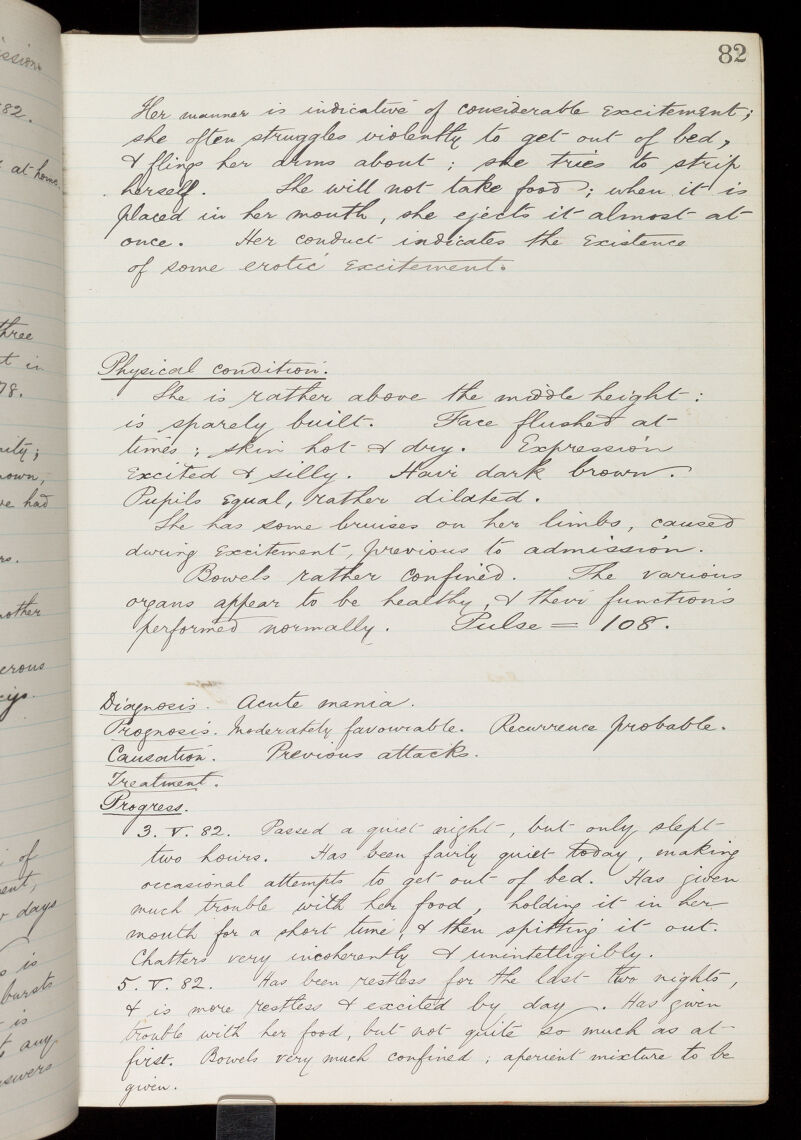 82
Her manner is indicative of considerable excitement;
she often struggles violently to get out of bed,
& flings her arms about; she tries to strip
herself. She will not take food; when it is
placed in her mouth, she ejects it almost at
once. Her conduct indicates the existence
of some erotic excitement.
Physical condition.
She is rather above the middle height:
is sparely built. Face flushed at
times; skin hot & dry. Expression
excited & silly. Hair dark brown.
Pupils equal, rather dilated.
She has some bruises on her limbs, caused
during excitement, previous to admission.
Bowels rather confined. The various
organs appear to be healthy, & their functions
performed normally. Pulse = 108.
Diagnosis. Acute mania.
Prognosis. Moderately favourable. Recurrence probable.
Causation. Previous attacks.
Treatment.
Progress.
3. V. 82. Passed a quiet night, but only slept
two hours. Has been fairly quiet today, making
occasional attempts to get out of bed. Has given
much trouble with her food, holding it in her
mouth for a short time, & then spitting it out.
Chatters very incoherently & unintelligibly.
5. V. 82. Has been restless for the last two nights,
& is more restless & excited by day. Has given
trouble with her food, but not quite so much as at
first. Bowels very much confined; aperient mixture to be
given.
82.
at home.
three
t in
78.
had
other
of
days
is
bursts
is
any